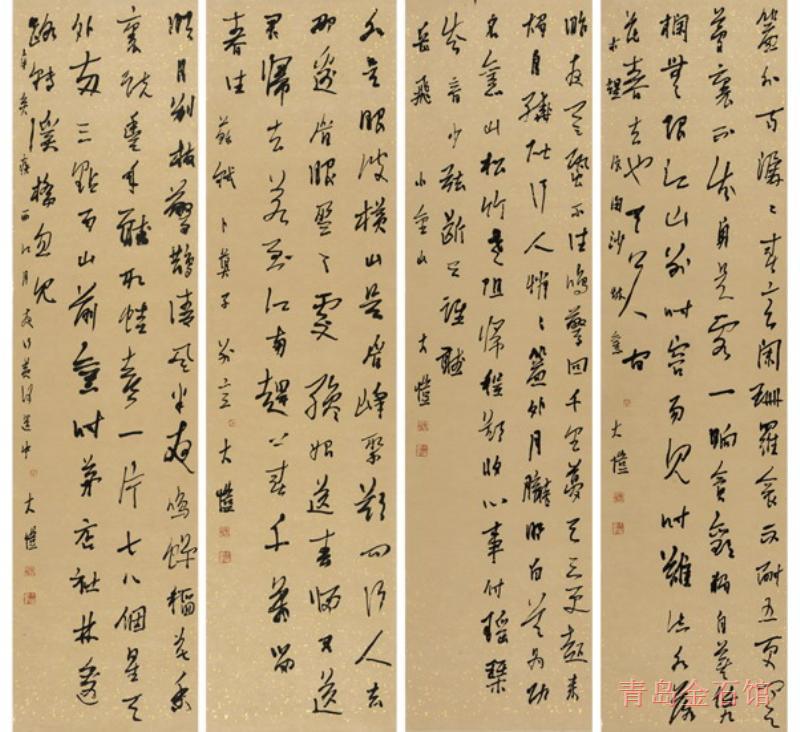 簾外雨潺潺春意闌珊羅衾不耐五更寒
夢裏不知身是客一晌貪歡獨自莫憑
欄無限江山別時容易見時難流水落
花春去也天上人間
李煜浪淘沙 大愷
昨夜寒蛩不住鳴驚回千里夢已三更起來
獨自繞階行人悄悄簾外月朧明白首為功
名舊山松竹老阻歸程欲將心事付瑤琴
知音少弦斷有誰聽
岳飛 小重山 大愷
水是眼波橫山是眉峰聚欲問行人去
那邊眉眼盈盈處才始送春歸又送
君歸去若到江南趕上春千萬
春住 蘇軾卜算子 大愷
明月別枝驚鵲清風半夜鳴蟬稻花香
裏說豐年聽取蛙聲一片七八個星天
外兩三點雨山前舊時茅店社林邊
路轉溪橋忽見
辛棄疾西江月夜行黃沙道中 大愷
青岛金石馆